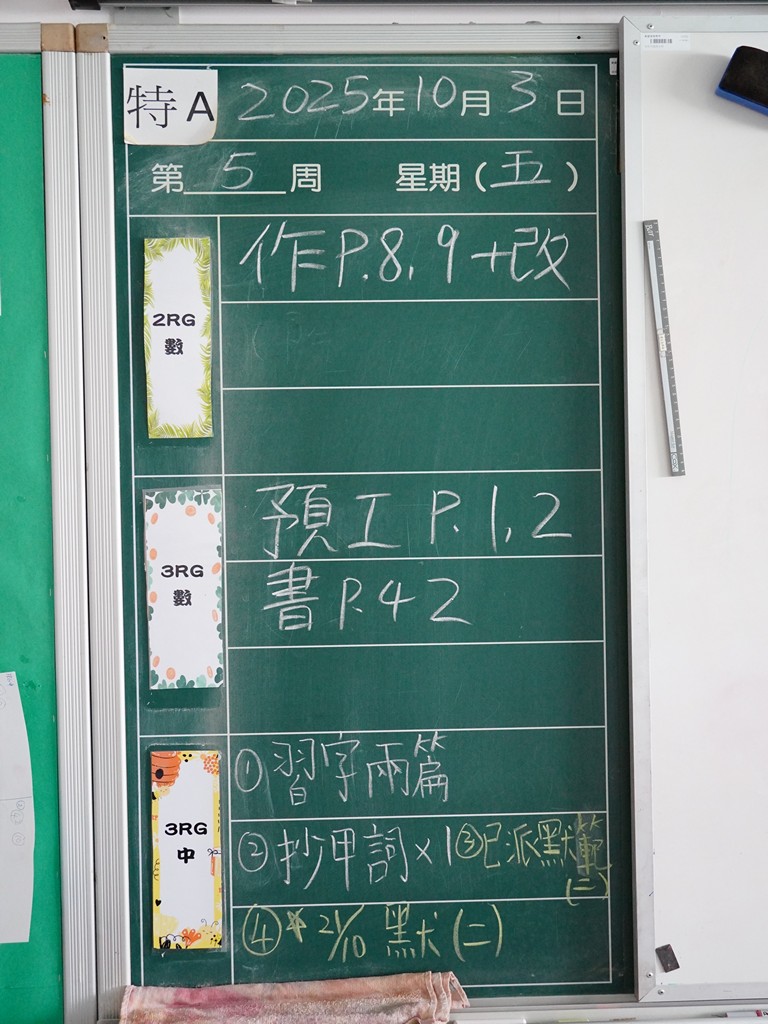 特A 2025年10月3日
第5周 星期(五)
2RG
數
作P.8,9+改
3RG
數
預工 P.1,2
書P.42
3RG
中
①習字兩篇
②抄甲詞×1 ③已派默範(二)
④*21/10 默(二)